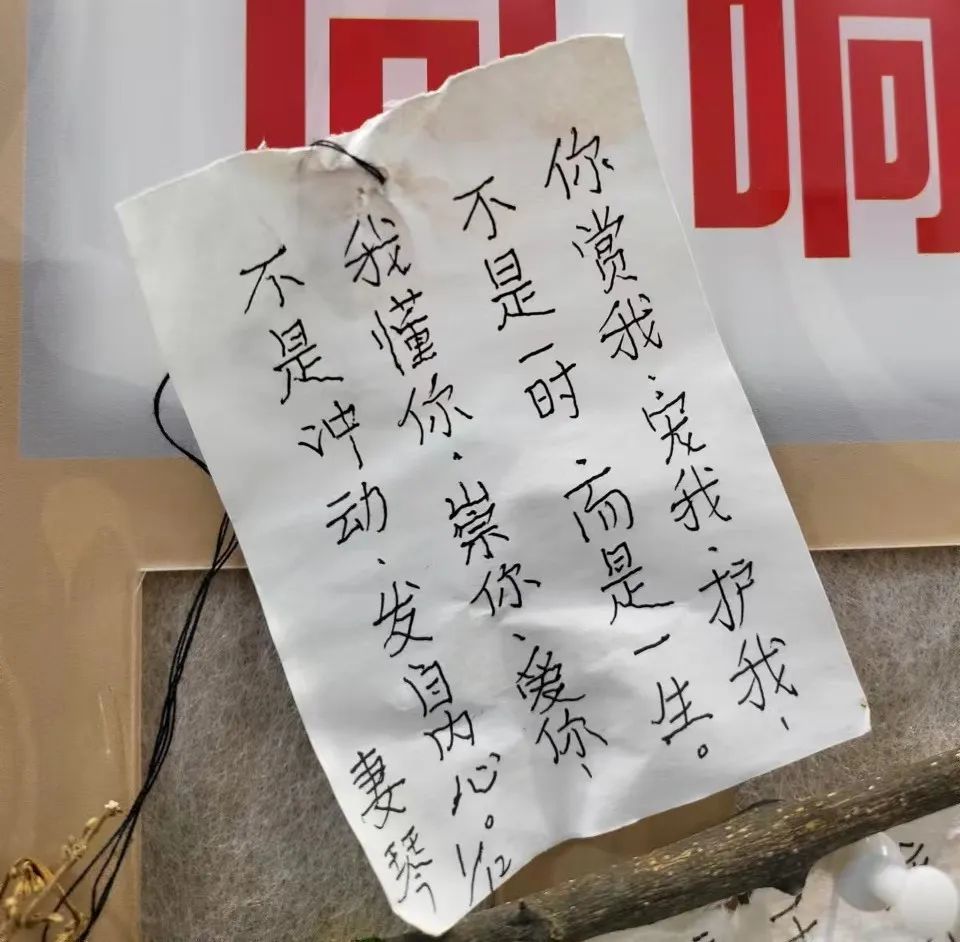 响
你赏我、宠我、护我、
不是一时、而是一生。
我懂你、崇你、爱你、
不是冲动、发自内心。
妻琴 1/12